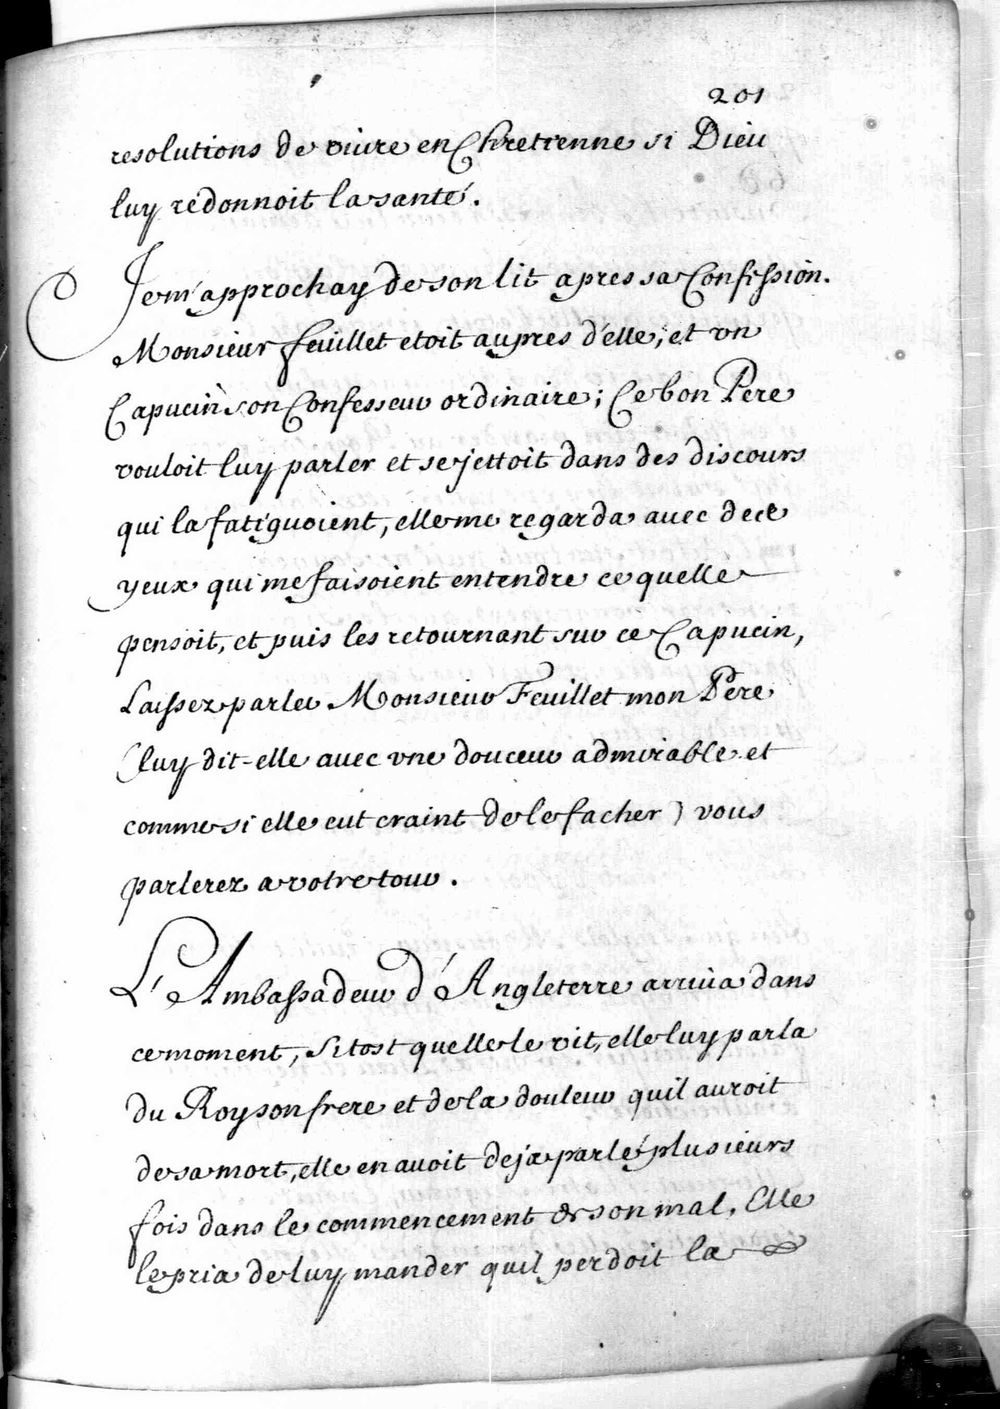 201
resolutions de vivre en Chretienne si Dieu
luy redonnoit la santé.
Je m'approchay de son lit apres sa Confession.
Monsieur feuillet etoit aupres d'elle, et vn
Capucin son Confesseur ordinaire; Ce bon Pere
vouloit luy parler et se jettoit dans des discours
qui la fatiguoient, elle me regarda avec des
yeux qui me faisoient entendre ce quelle
pensoit, et puis les retournant sur ce Capucin,
Laissez parler Monsieur Feuillet mon Pere
(luy dit-elle avec vne douceur admirable et
comme si elle eut craint de le facher) vous
parlerez a votre tour.
L'Ambassadeur d'Angleterre arriva dans
ce moment, Sitost quelle le vit, elle luy parla
du Roy son frere et de la douleur quil auroit
de sa mort, elle en avoit deja parlé plusieurs
fois dans le commencement de son mal, Elle
le pria de luy mander quil perdoit la